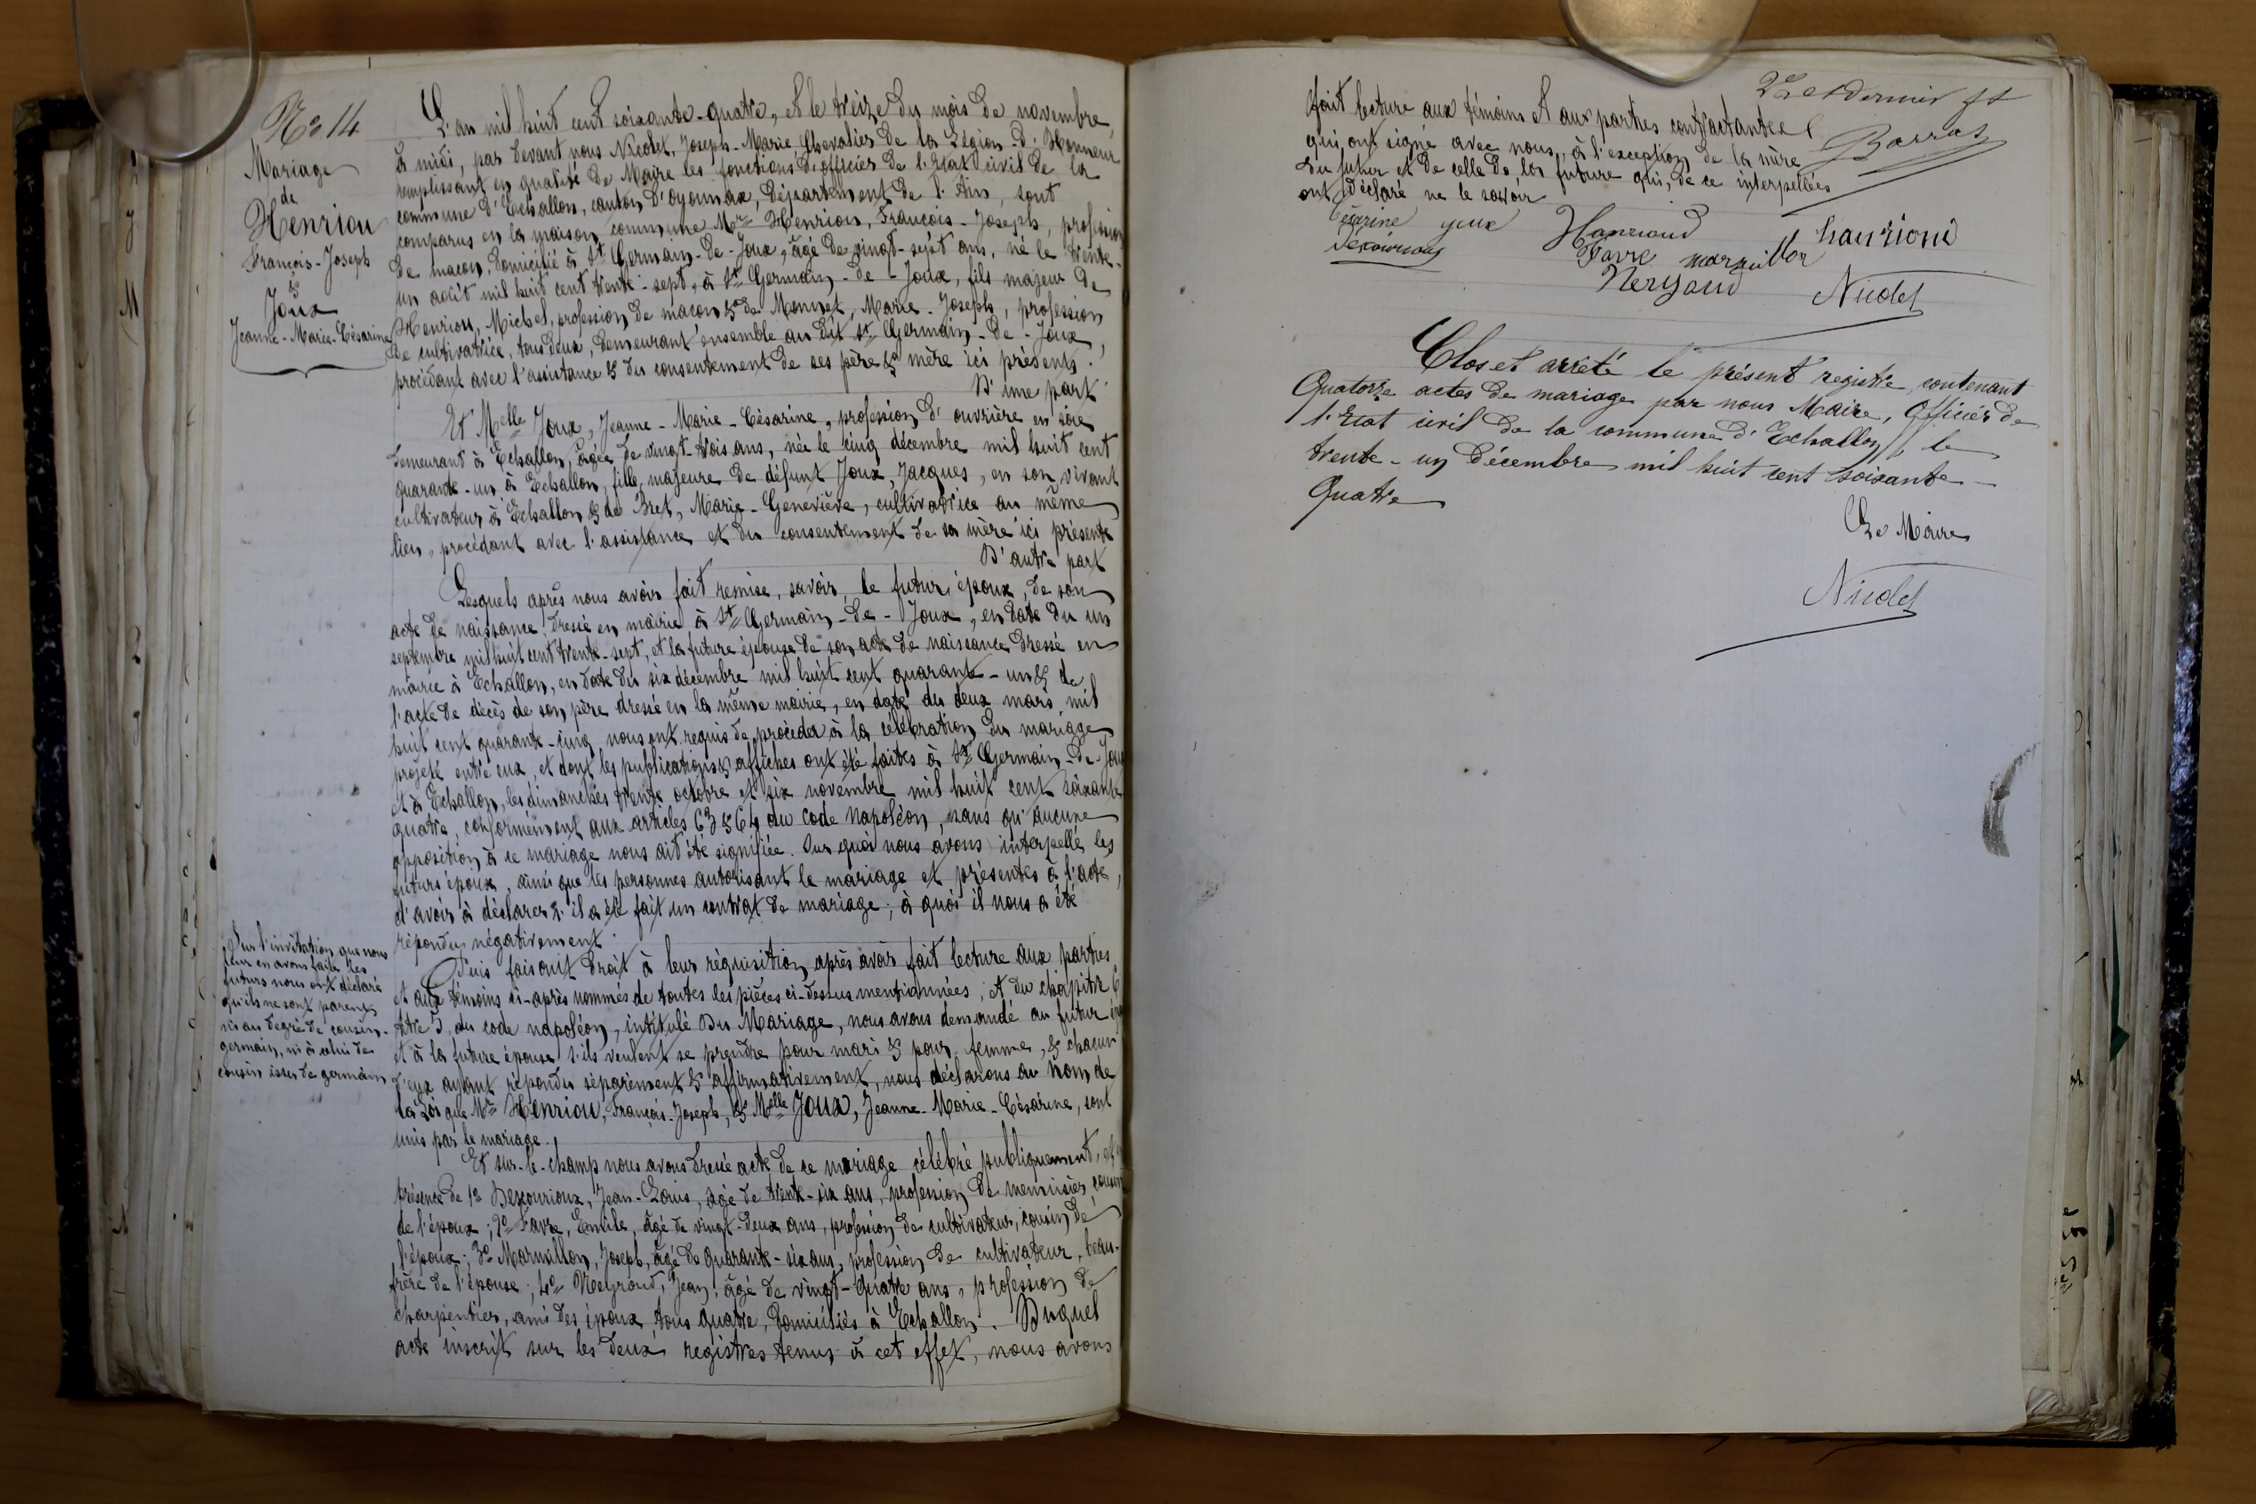 No 14
Mariage
de
Henriou
François-Joseph
&
Joux
Jeanne-Marie-Césarine
L'an mil huit cent soixante-quatre, et le treize du mois de novembre,
à midi, par devant nous Nicolet, Joseph-Marie Chevalier de la Légion-d'Honneur
remplissant en qualité de Maire les fonctions d'officier de l'Etat civil de la
commune d'Echallon, canton d'oyonnax, département de l'Ain, sont
comparus en la maison commune Mr Henriou, François-Joseph, profession
de maçon, domicilié à St Germain-de-Joux, âgé de vingt-sept ans, né le trente-
un août mil huit cent trente-sept, à St Germain-de-Joux, fils majeur de
Henriou, Michel, profession de maçon & de Monnet, Marie-Joseph, profession
de cultivatrice, tous deux, demeurant ensemble au dit St Germain-de-Joux,
procédant avec l'assistance & du consentement de ses père & mère ici présents.
D'une part
Et Melle Joux, Jeanne-Marie-Césarine, profession d'ouvrière en soie
demeurant à Echallon, âgée de vingt-trois ans, née le cinq décembre mil huit cent
quarante-un à Echallon, fille majeure de défunt Joux, Jacques, en son vivant
cultivateur à Echallon & de Bret, Marie-Geneviève, cultivatrice au même
lieu, procédant avec l'assistance et du consentement de sa mère ici présente
D'autre part
Lesquels après nous avoir fait remise, savoir, le futur époux, de son
acte de naissance, dressé en mairie à St Germain-de-Joux, en date du un
septembre mil huit cent trente-sept, et la future épouse de son acte de naissance dressé en
mairie à Echallon, en date du six décembre mil huit cent quarante-un & de
l'acte de décès de son père dressé en la même mairie, en date du deux mars mil
huit cent quarante-cinq, nous ont requis de procéder à la célébration du mariage
projeté entre eux, et dont les publications & affiches ont été faites à St Germain-de-Joux
et à Echallon, les dimanches trente octobre et six novembre mil huit cent soixante
quatre, conformément aux articles 63 & 64 du code Napoléon, sans qu'aucune
opposition à ce mariage nous ait été signifiée. Sur quoi nous avons interpellé les
futurs époux, ainsi que les personnes autorisant le mariage et présentes à l'acte,
d'avoir à déclarer s'il a été fait un contrat de mariage; à quoi il nous a été
répondu négativement.
Sur l'invitation que nous
leur en avons faite les
futurs nous ont déclaré
qu'ils ne sont parents
ni au degré de cousin-
germain, ni à celui de
cousin issu de germain
Puis faisant droit à leur réquisition après avoir fait lecture aux parties
et aux témoins ci-après nommés de toutes les pièces ci-dessus mentionnées, et du chapitre 6
titre 5 du code napoléon, intitulé Du Mariage, nous avons demandé au futur
et à la future épouse s'ils veulent se prendre pour mari & pour femme, & chacun
d'eux ayant répondu séparément & affirmativement, nous déclarons au nom de
la Loi que Mr Henriou, François-Joseph, & Melle Joux, Jeanne-Marie-Césarine, sont
unis par le mariage.
Et sur-le-champ nous avons dressé acte de ce mariage célébré publiquement, en
présence de 1º Descourioux, Jean-Louis, âgé de trente-six ans, profession de menuisier, cousin
de l'époux; 2º Favre, Emile, âgé de vingt-deux ans, profession de cultivateur, cousin de
l'époux; 3º Marmillon, Joseph, âgé de quarante-six ans, profession de cultivateur, beau-
frère de l'épouse; 4º Neyroud, Jean, âgé de vingt-quatre ans, profession de
charpentier, ami des époux, tous quatre, domiciliés à Echallon. Duquel
acte inscrit sur les deux registres tenus à cet effet, nous avons
dernier ft
Barras
fait lecture aux témoins et aux parties contractantes
qui ont signé avec nous, à l'exception de la mère
du futur et de celle de la future qui, de ce interpellées
ont déclaré ne le savoir
Césarine joux
Favre
Nicolet
Clos et arrêté le présent registre, contenant
Quatorze actes de mariage par nous Maire, Officier de
l'Etat civil de la commune d'Echallon, le
trente-un Décembre mil huit cent soixante-
Quatre
Le Maire
Nicolet